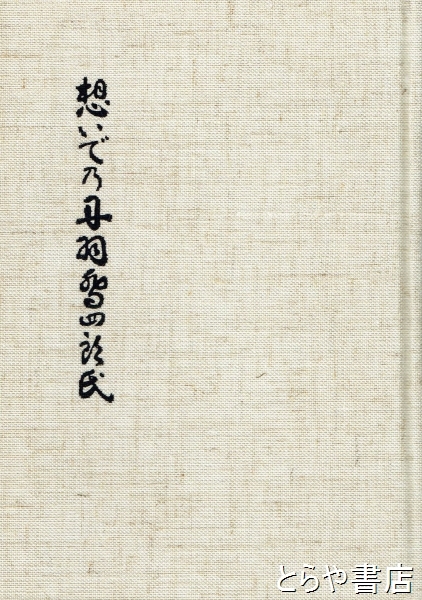 想いで乃丹羽喬四郎氏
とらや書店